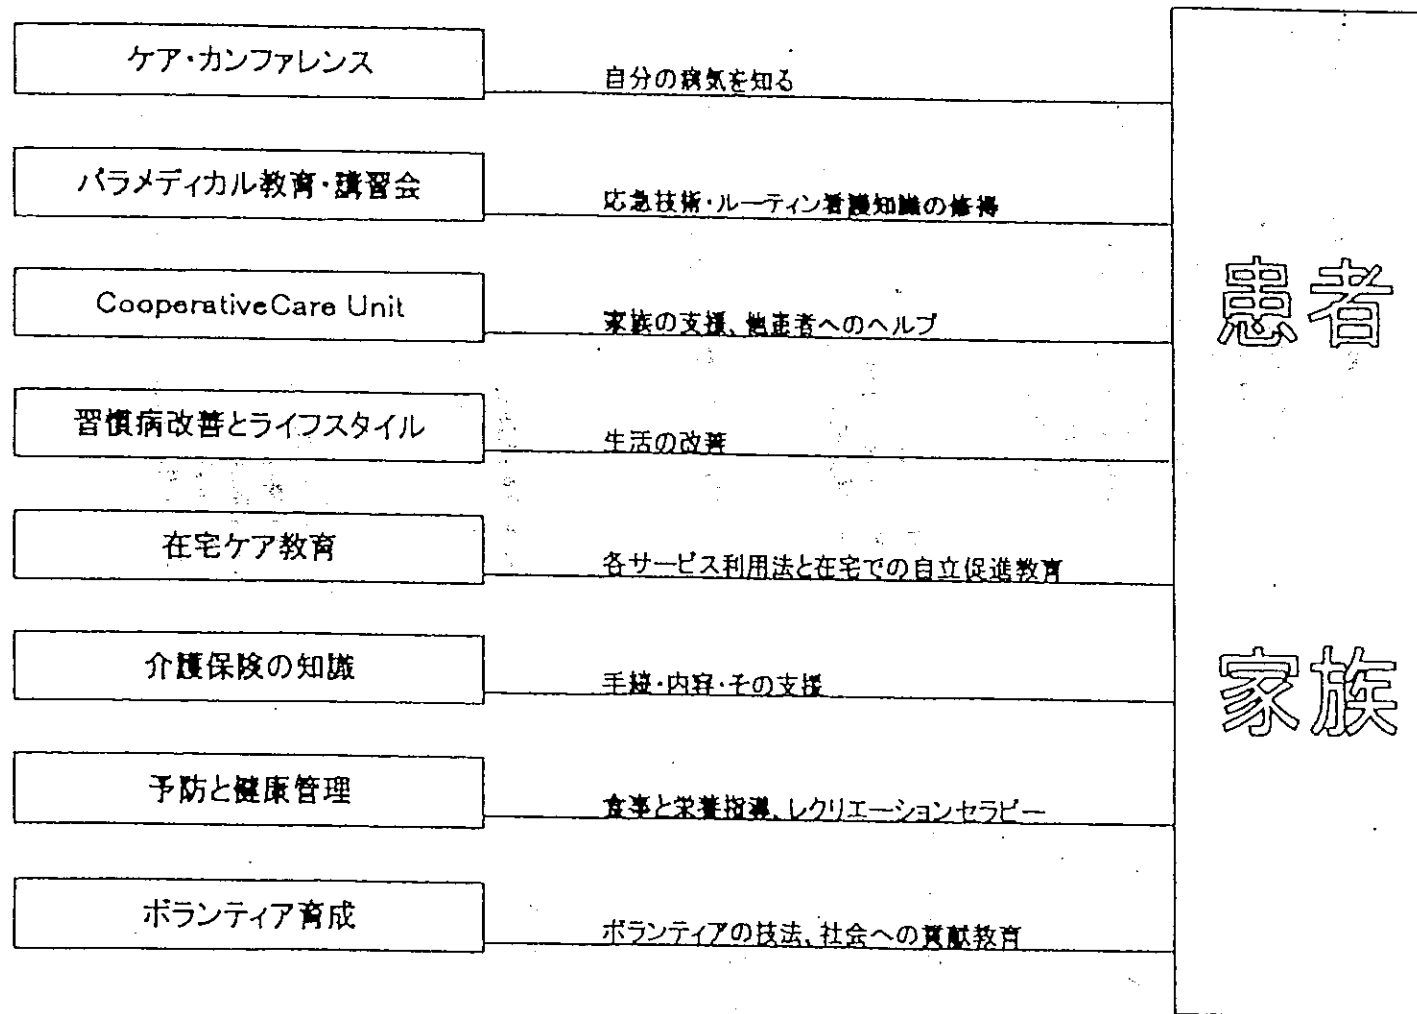 ケア・カンファレンス
自分の病気を知る
パラメディカル教育・講習会
応急技術・ルーティン看護知識の修得
CooperativeCare Unit
家族の支援、他患者へのヘルプ
習慣病改善とライフスタイル
生活の改善
在宅ケア教育
各サービス利用法と在宅での自立促進教育
介護保険の知識
手続・内容・その支援
予防と健康管理
食事と栄養指導、レクリエーションセラピー
ボランティア育成
ボランティアの技法、社会への貢献教育
患者
家族